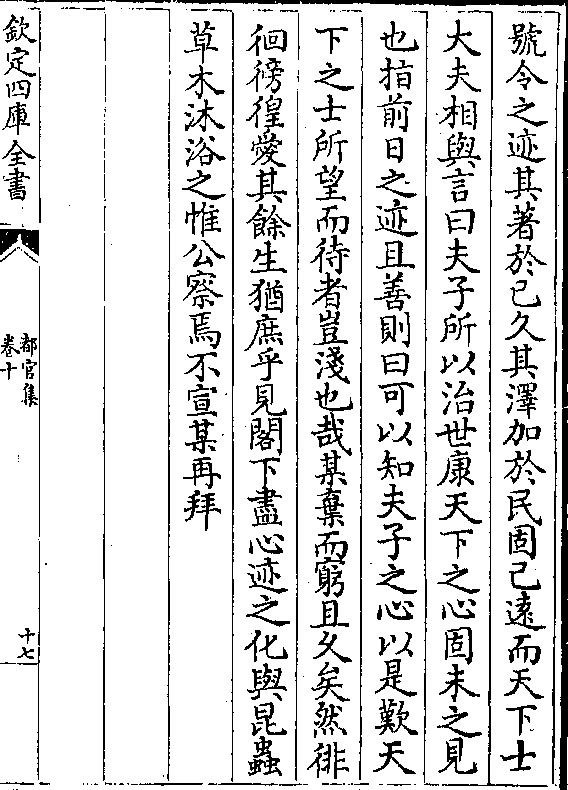 號令之迹其著於已久其澤加於民固已遠而天下士
大夫相與言曰夫子所以治世康天下之心固未之見
也指前日之迹且善則曰可以知夫子之心以是歎天
下之士所望而待者豈淺也哉某棄而窮且久矣然徘
徊徬徨愛其餘生猶庶乎見閣下盡心迹之化與昆蟲
草木沐浴之惟公察焉不宣某再拜
欽定四庫全書
都官集
卷十
十七